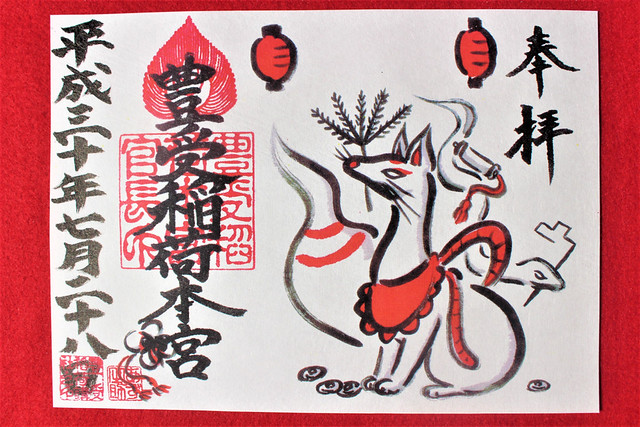 奉拝
豊受稲荷本宮
平成三十年七月二十八日